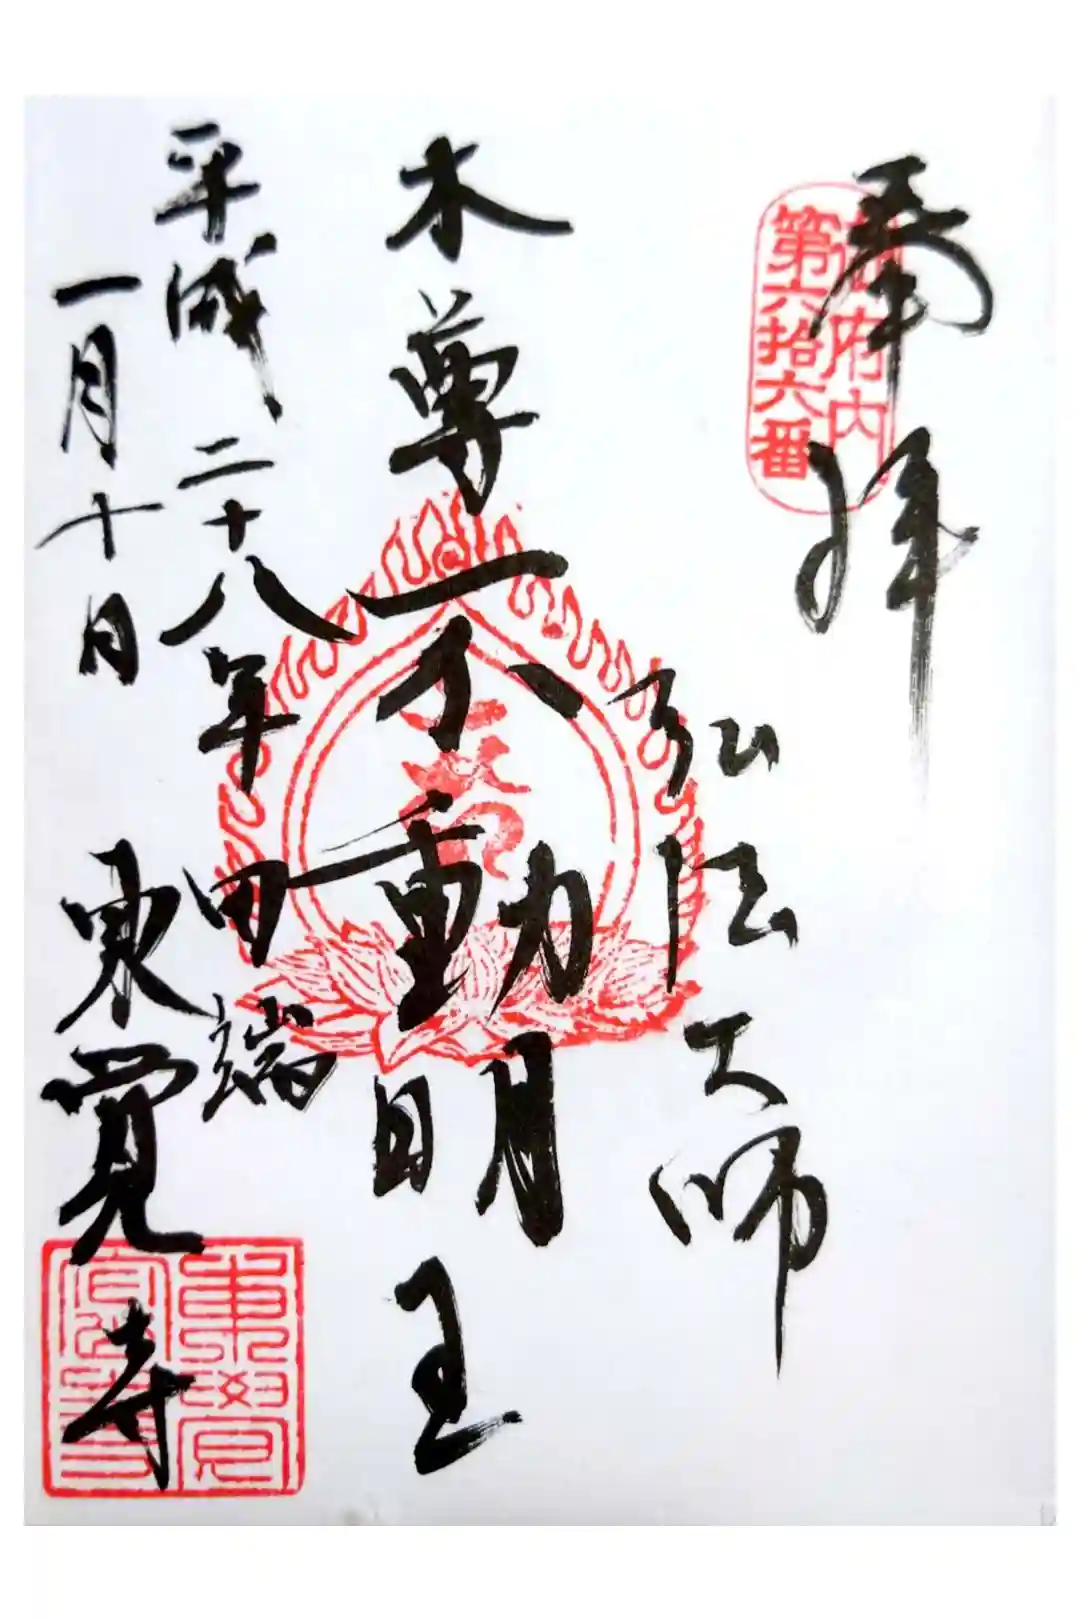 奉拝
御府内
第六拾六番
弘法大師
本尊不動明王
平成二十八年
一月十日
田端
東覚寺
東覺寺